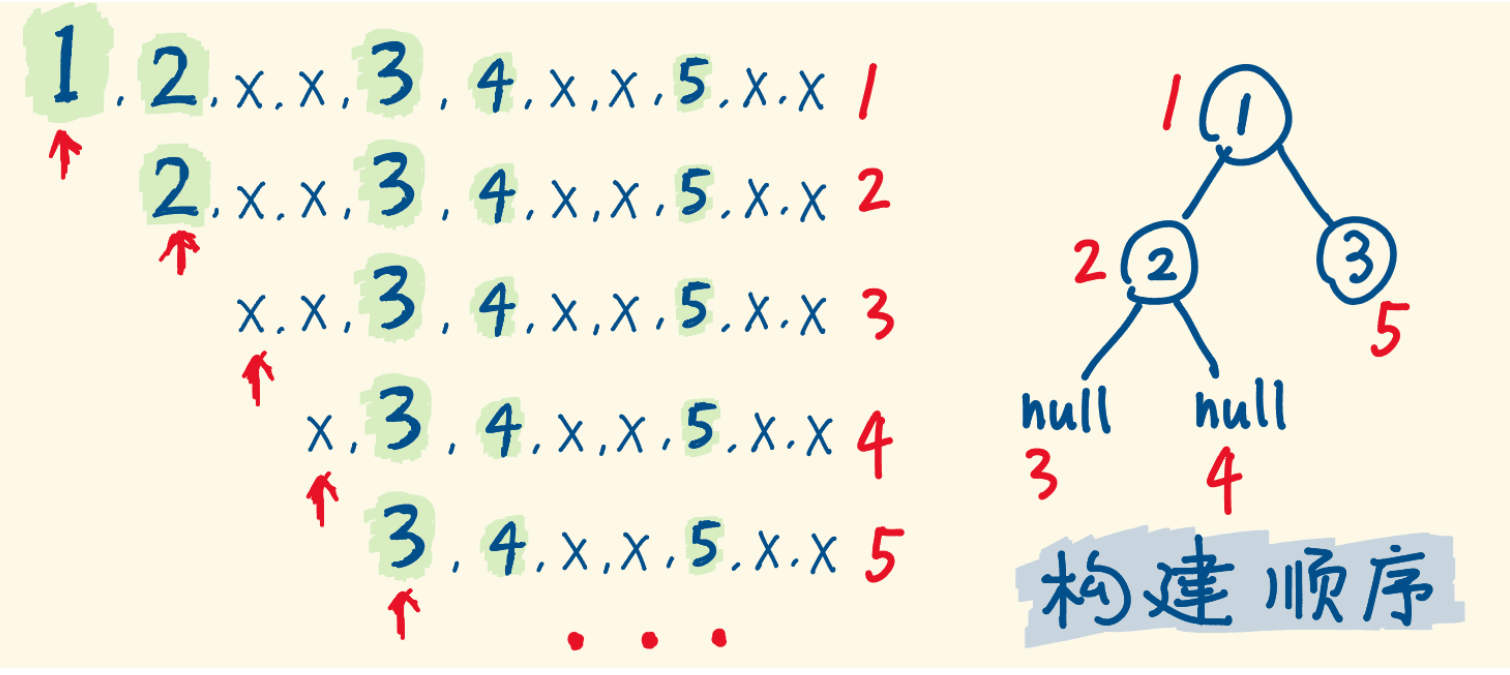 1,2,x,x,3,4,x,x,5,x,x 1
2,x,x,3,4,x,x,5,x,x 2
x,x,3,4,x,x,5,x,x 3
x,3,4,x,x,5,x,x 4
3,4,x,x,5,x,x 5
...
1 1
2 2 3
5
null null
3 4
构建顺序